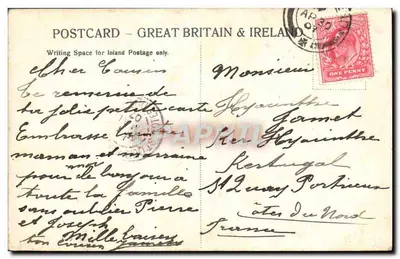 POSTCARD – GREAT BRITAIN & IRELAND
Writing Space for Inland Postage only.
Cher Cousin
Te remercie de
ta jolie petite carte
Embrasse
maman et marraine
pour
toute la famille
sans oublier Pierre
et Joseph
Mille baisers
ton cousin
Monsieur
Hyacinthe
Jamet
Ker Hyacinthe
Kertugal
St Quay Portrieux
Côtes du Nord
France
ONE PENNY